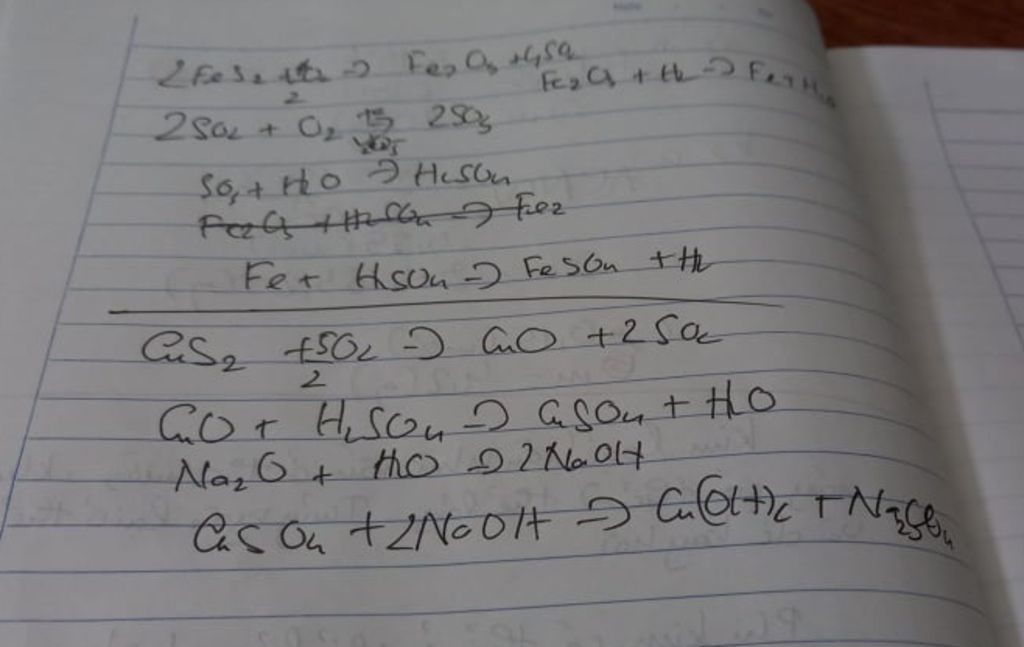 2FeS2 + O2 → Fe2O3 + 4SO2
2
Fe2O3 + H2 → Fe + H2O
2SO2 + O2 → 2SO3
V2O5
SO3 + H2O → H2SO4
Fe2O3 + H2SO4 → Fe2
Fe + H2SO4 → FeSO4 + H2
CuS2 + 5O2 → CuO + 2SO2
2
CuO + H2SO4 → CuSO4 + H2O
Na2O + H2O → 2NaOH
CuSO4 + 2NaOH → Cu(OH)2 + Na2SO4